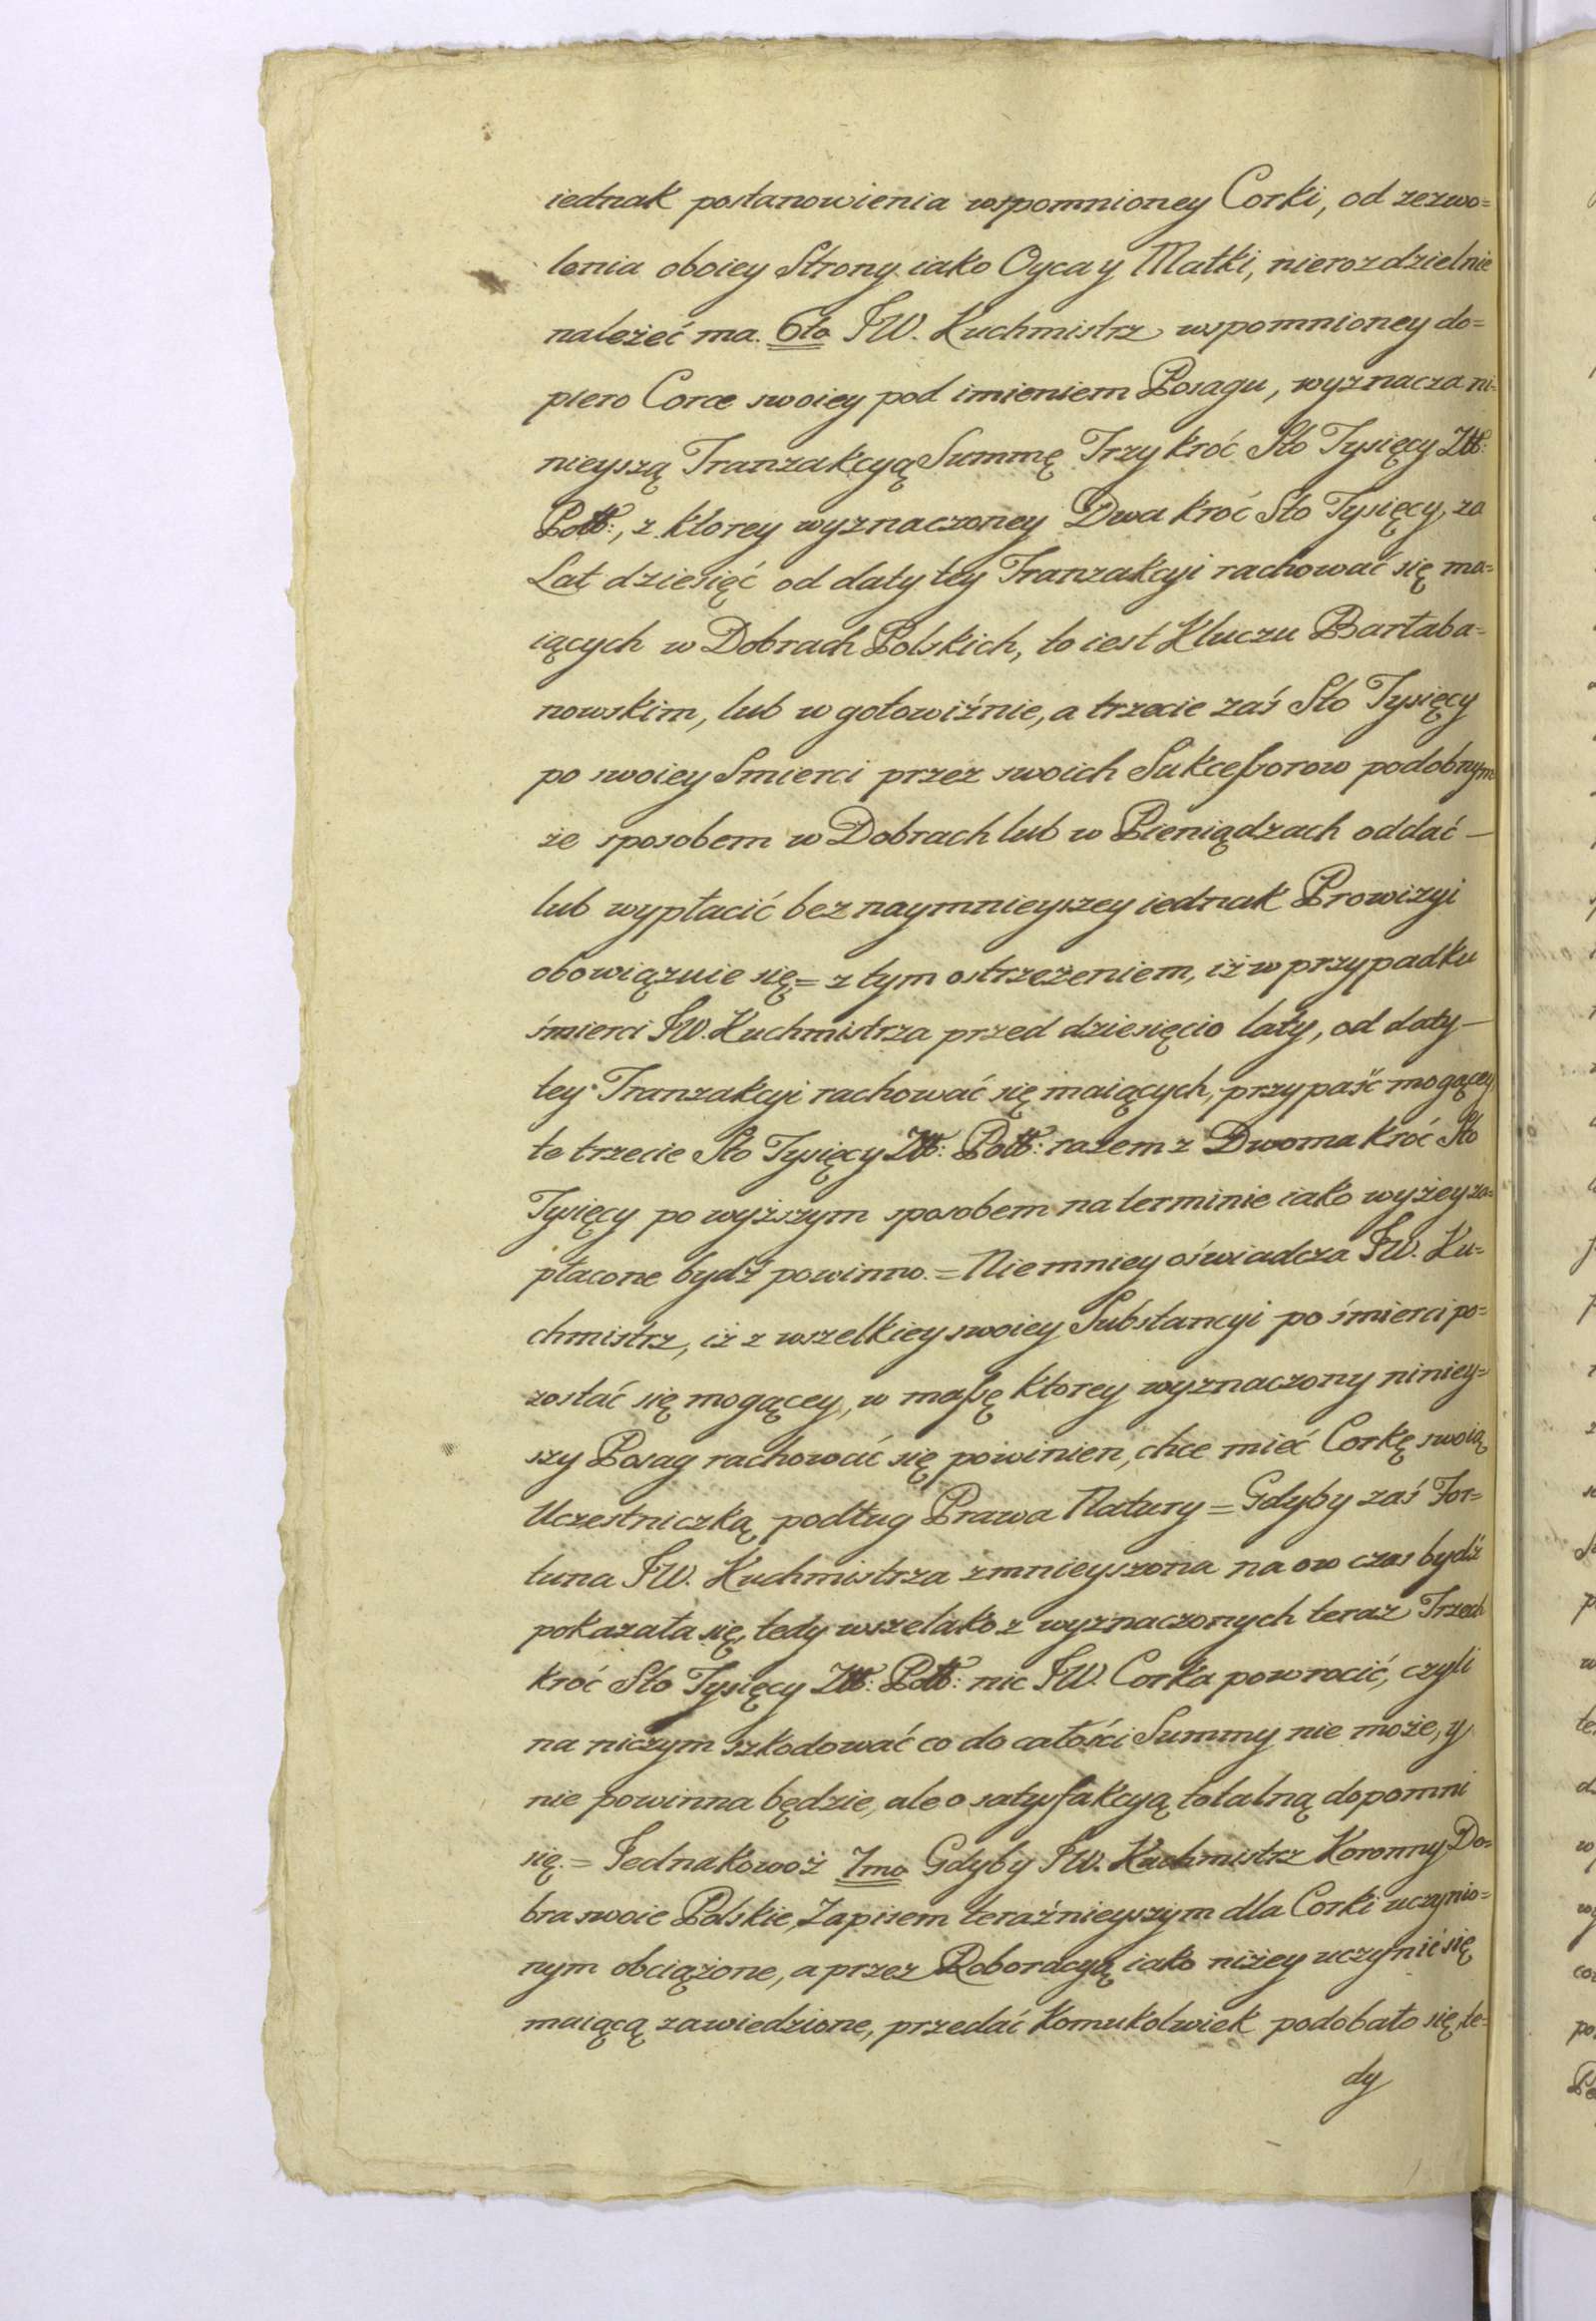 iednak postanowienia wspomnioney Corki, od zezwo=
lenia oboiey Strony iako Oyca y Matki, nierozdzielnie
należeć ma. 6to JW. Kuchmistrz wspomnioney do=
piero Corce swoiey pod imieniem Posagu, wyznacza ni=
nieyszą Tranzakcyą Summę Trzy kroć Sto Tysięcy Złł:
Poll:, z ktorey wyznaczoney Dwa kroć Sto Tysięcy, za
Lat dziesięć od daty tey Tranzakcyi rachować się ma=
iących w Dobrach Polskich, to iest Kluczu Bartaba=
nowskim, lub w gotowiźnie, a trzecie zaś Sto Tysięcy
po swoiey Smierci przez swoich Sukceßorow podobnym
że sposobem w Dobrach lub w Pieniądzach oddać —
lub wypłacić bez naymnieyszey iednak Prowizyi
obowiązuie się, = z tym ostrzeżeniem, iż w przypadku
śmierci JW. Kuchmistrza przed dziesięcio laty, od daty —
tey Tranzakcyi rachować się maiących, przypaść mogącey
te trzecie Sto Tysięcy Złł: Poll: razem z Dwoma kroć Sto
Tysięcy po wyższym sposobem na terminie iako wyżey za=
płacone bydź powinno. = Niemniey oświadcza JW. Ku=
chmistrz, iż z wszelkiey swoiey Substancyi po śmierci po=
zostać się mogącey, w maßę ktorey wyznaczony niniey=
szy Posag rachować się powinien, chce mieć Corkę swoią
Uczestniczką podług Prawa Natury = Gdyby zaś For=
tuna JW. Kuchmistrza zmnieyszona na ow czas bydź
pokazała się, tedy wszelako z wyznaczonych teraz Trzech
kroć Sto Tysięcy Złł: Poll: nic JW. Corka powrocić, czyli
na niczym szkodować co do całości Summy nie może, y
nie powinna będzie, ale o satysfakcyą totalną dopomni
się. = Jednakowoż 7mo Gdyby JW. Kuchmistrz Koronny Do=
bra swoie Polskie, Zapisem teraźnieyszym dla Corki uczynio=
nym obciążone, a przez Roboracyą iako niżey uczynić się
maiącą zawiedzione, przedać komukolwiek podobało się, te=
dy